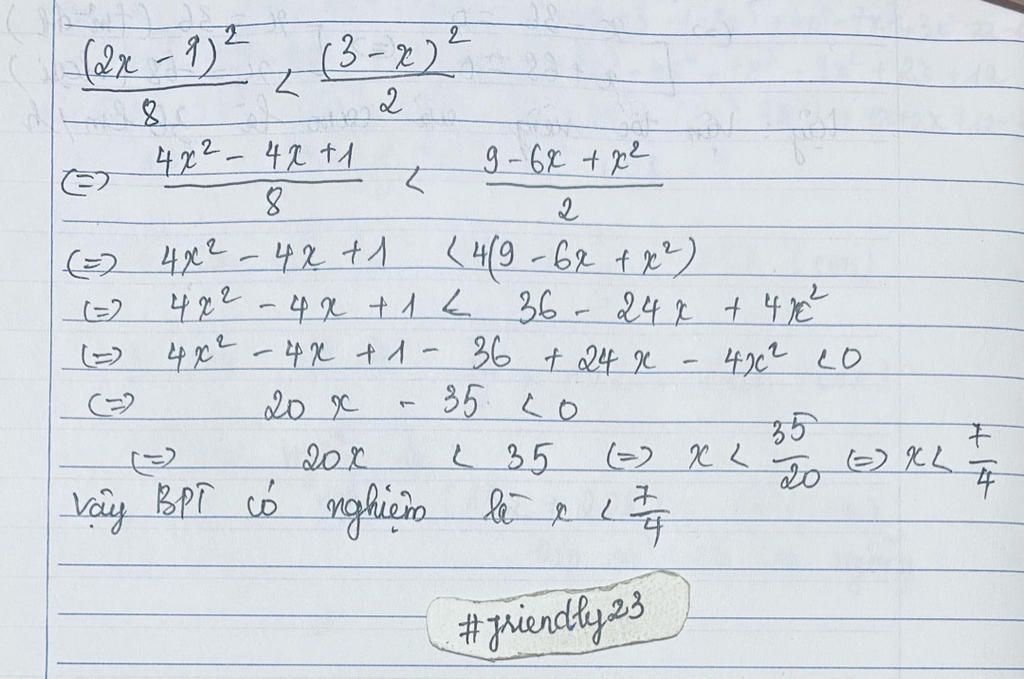 (2x - 1)²/8 < (3 - x)²/2
(=) (4x² - 4x + 1)/8 < (9 - 6x + x²)/2
(=) 4x² - 4x + 1 < 4(9 - 6x + x²)
(=) 4x² - 4x + 1 < 36 - 24x + 4x²
(=) 4x² - 4x + 1 - 36 + 24x - 4x² < 0
(=) 20x - 35 < 0
(=) 20x < 35 (=) x < 35/20 (=) x < 7/4
Vậy BPT có nghiệm là x < 7/4
#friendly23